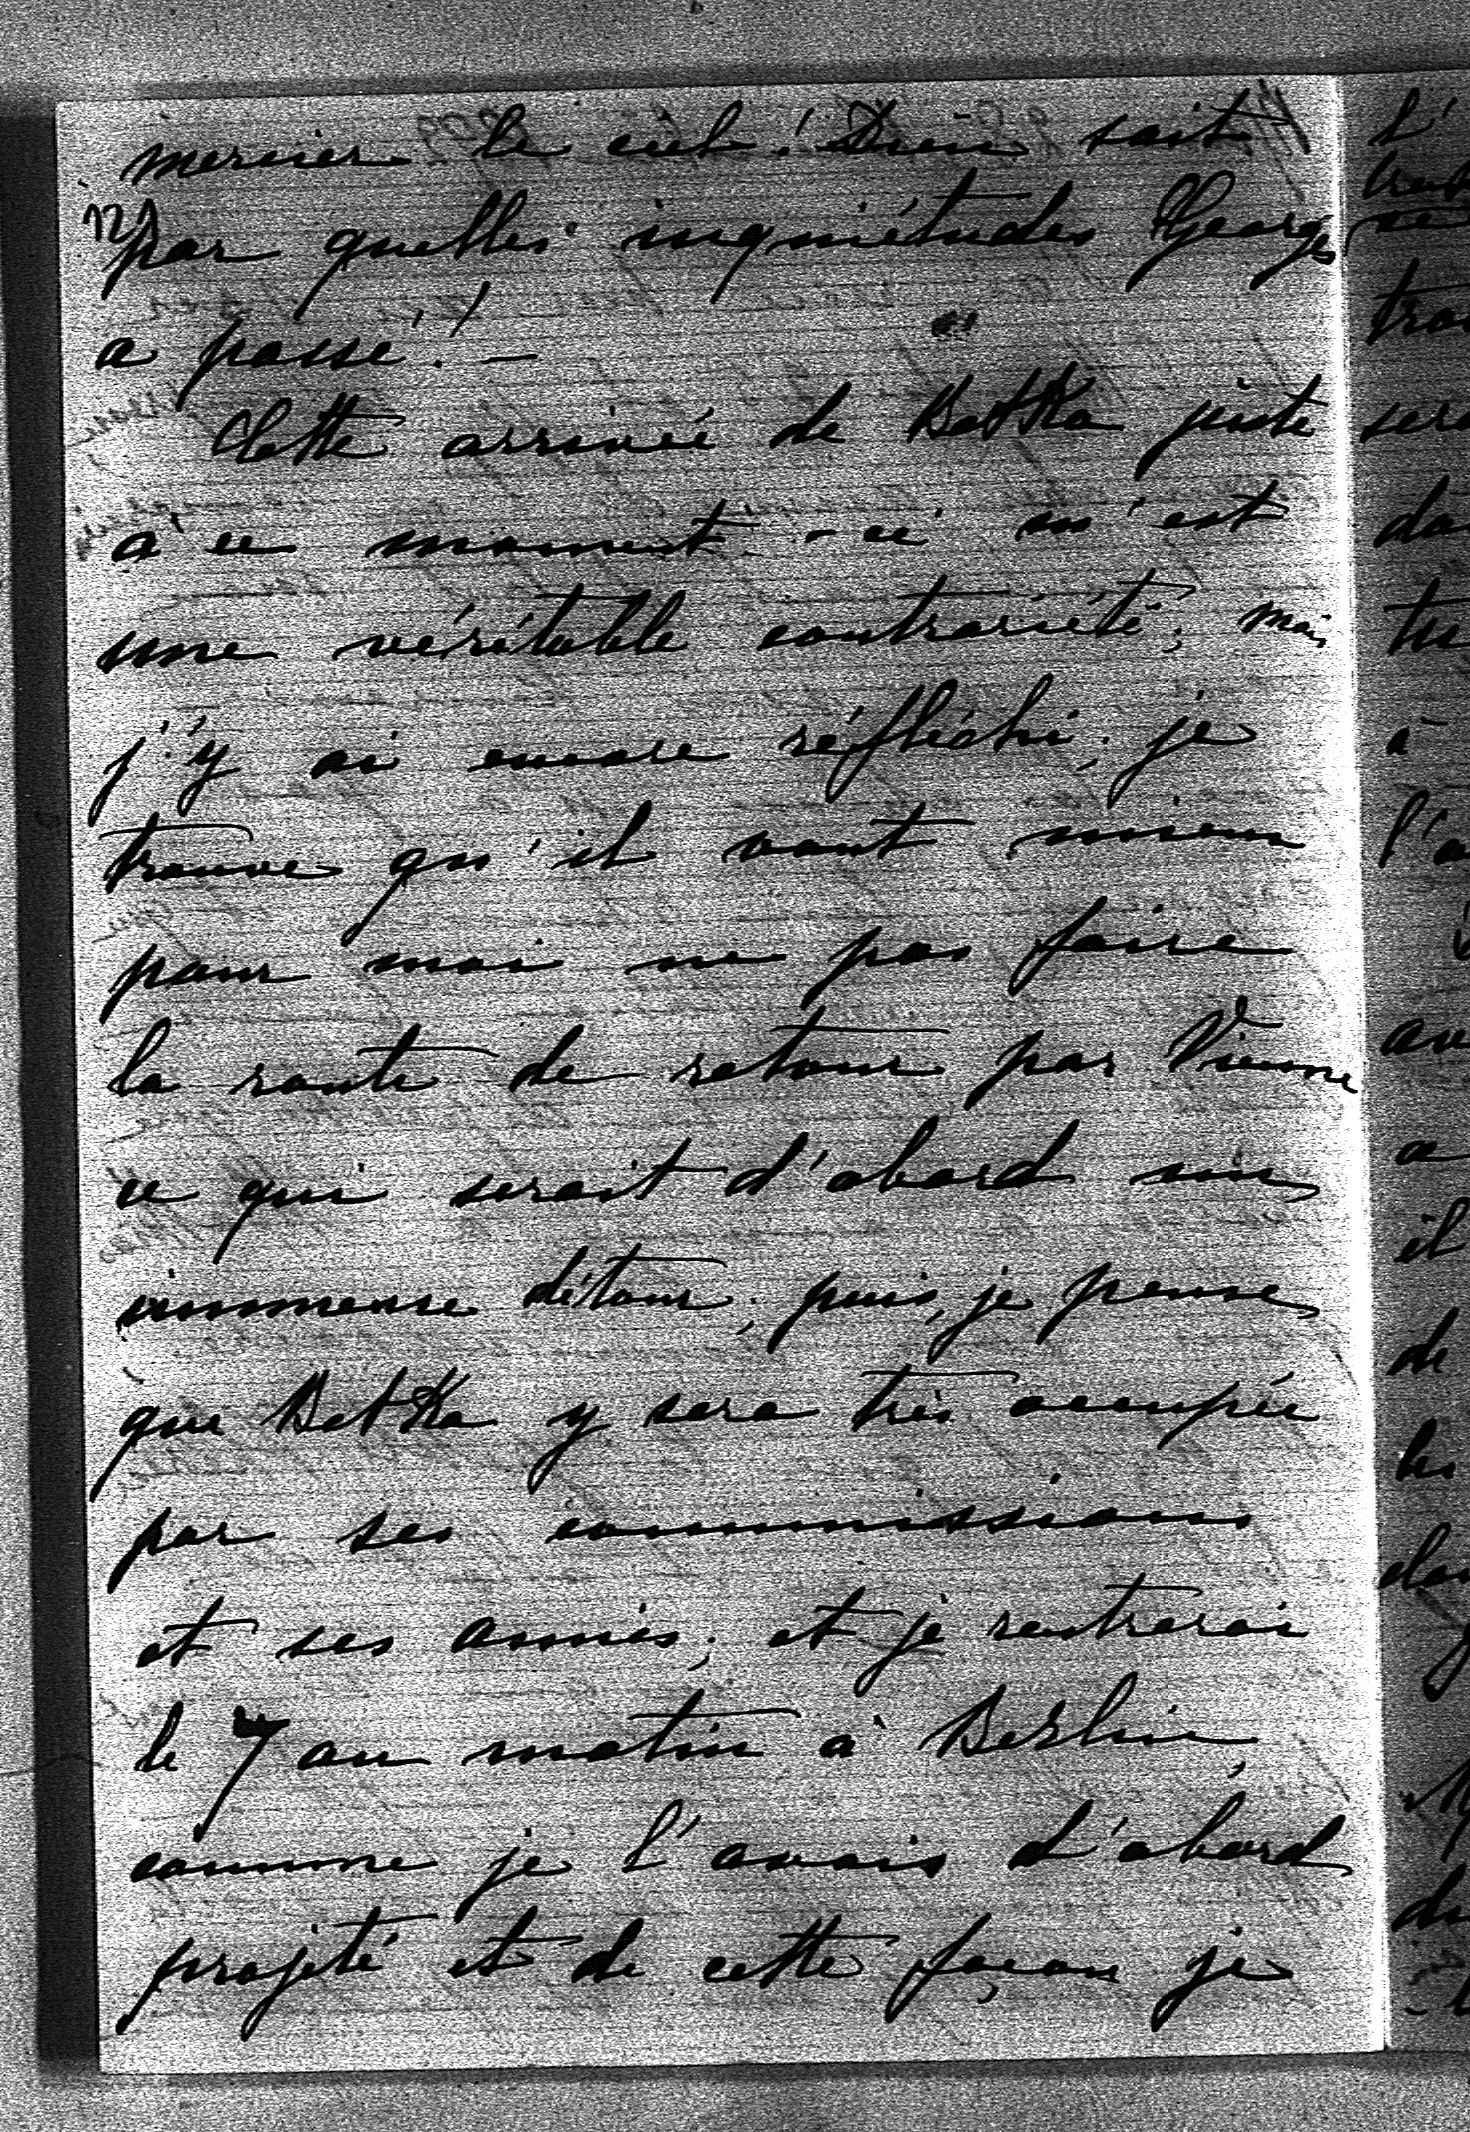 mercier le ciel! Dieu sait
121
par quelles inquiétudes Georges
a passé! —
Cette arrivée de Betka juste
à ce moment-ci m'est
une véritable contrariété; mais
j'y ai encore réfléchi; je
trouve qu'il vaut mieux
pour moi ne pas faire
la route de retour par Vienne
ce qui serait d'abord un
immense détour; puis, je pense
que Betka y sera très occupée
par ses commissions
et ses amis; et je rentrerai
le 7 au matin à Berlin,
comme je l'avais d'abord
projeté et de cette façon je